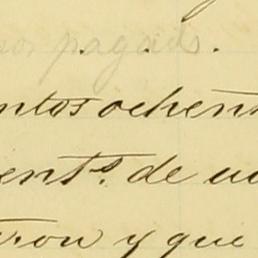 pagads.
ntos ochent
ent.s de u
ron y que